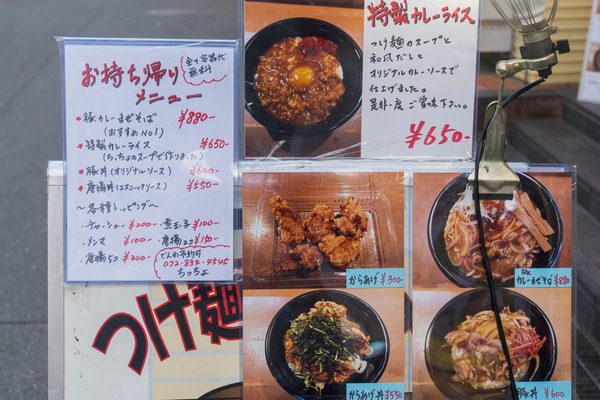 お持ち帰り
メニュー
全て容器代
無料
★豚カレーまぜそば ¥880-
(おすすめNO1)
★特製カレーライス ¥650-
(ちっちょのスープで作りました)
★豚丼(オリジナルソース) ¥600-
★唐揚丼(エスニックソース) ¥550-
～各種トッピング～
・チャーシュー ¥200-
・煮玉子 ¥100-
・メンマ ¥100-
・唐揚2コ ¥150-
・唐揚5コ ¥300-
でんわ予約可
072-834-4545
ちっちょ
特製カレーライス
つけ麺のスープと
和風だしと
オリジナルカレーソースで
仕上げました。
是非一度ご賞味下さい。
¥650-
からあげ ¥300
豚カレーまぜそば ¥880
からあげ丼 ¥550
豚丼 ¥600
つけ麺